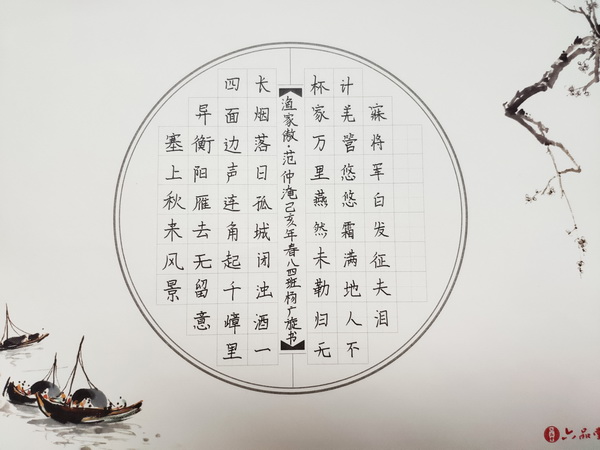 塞上秋来风景
异衡阳雁去无留意
四面边声连角起千嶂里
长烟落日孤城闭浊酒一
渔家傲·范仲淹己亥年春八四班杨广旋书
杯家万里燕然未勒归无
计羌管悠悠霜满地人不
寐将军白发征夫泪
六品堂